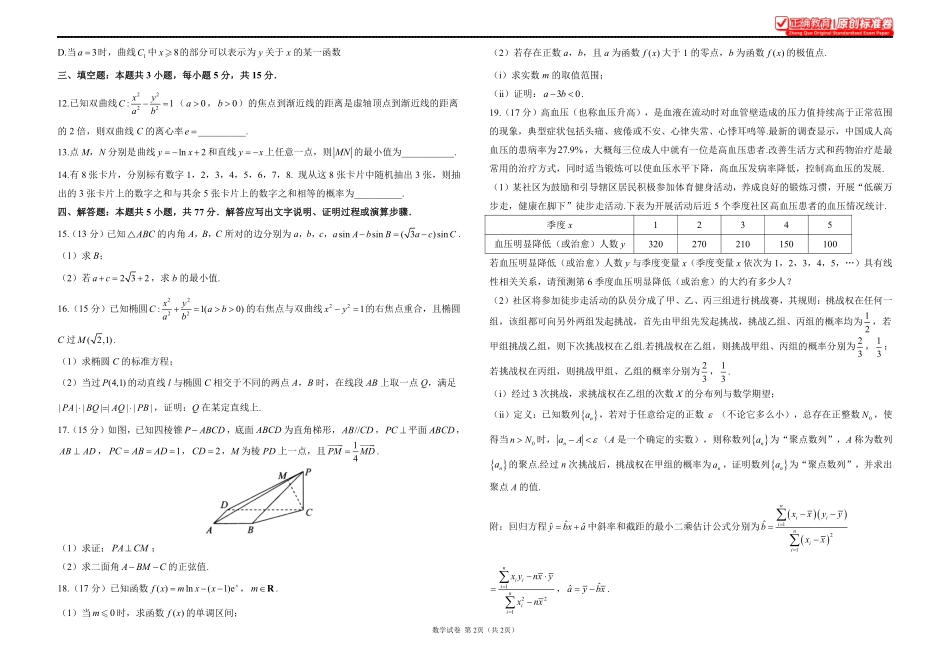 正确教育 原创标准卷
Zheng Que Original Standardized Exam Paper
D.当a=3时，曲线C₁中x⩾8的部分可以表示为y关于x的某一函数
三、填空题：本题共3小题，每小题5分，共15分．
12.已知双曲线C: x²/a² - y²/b² = 1（a>0，b>0）的焦点到渐近线的距离是虚轴顶点到渐近线的距离
的2倍，则双曲线C的离心率e=__________.
13.点M，N分别是曲线y=-ln x+2和直线y=-x上任意一点，则|MN|的最小值为___________.
14.有8张卡片，分别标有数字1，2，3，4，5，6，7，8. 现从这8张卡片中随机抽出3张，则抽
出的3张卡片上的数字之和与其余5张卡片上的数字之和相等的概率为__________.
四、解答题：本题共5小题，共77分．解答应写出文字说明、证明过程或演算步骤．
15.（13分）已知△ABC的内角A，B，C所对的边分别为a，b，c，a sin A-b sin B=(√3a-c)sin C．
（1）求B；
（2）若a+c=2√3+2，求b的最小值.
16.（15分）已知椭圆C: x²/a² + y²/b² = 1(a>b>0)的右焦点与双曲线x²-y²=1的右焦点重合，且椭圆
C过M(√2,1).
（1）求椭圆C的标准方程；
（2）当过P(4,1)的动直线l与椭圆C相交于不同的两点A，B时，在线段AB上取一点Q，满足
|PA|·|BQ|=|AQ|·|PB|，证明：Q在某定直线上.
17.（15分）如图，已知四棱锥P-ABCD，底面ABCD为直角梯形，AB//CD，PC⊥平面ABCD，
AB⊥AD，PC=AB=AD=1，CD=2，M为棱PD上一点，且PM=1/4 MD．
P
M
D
C
A
B
（1）求证：PA⊥CM；
（2）求二面角A-BM-C的正弦值.
18.（17分）已知函数f(x)=m ln x-(x-1)eˣ，m∈R．
（1）当m⩽0时，求函数f(x)的单调区间；
（2）若存在正数a，b，且a为函数f(x)大于1的零点，b为函数f(x)的极值点.
（i）求实数m的取值范围；
（ii）证明：a-3b<0.
19.（17分）高血压（也称血压升高），是血液在流动时对血管壁造成的压力值持续高于正常范围
的现象，典型症状包括头痛、疲倦或不安、心律失常、心悸耳鸣等.最新的调查显示，中国成人高
血压的患病率为27.9%，大概每三位成人中就有一位是高血压患者.改善生活方式和药物治疗是最
常用的治疗方式，同时适当锻炼可以使血压水平下降，高血压发病率降低，控制高血压的发展.
（1）某社区为鼓励和引导辖区居民积极参加体育健身活动，养成良好的锻炼习惯，开展“低碳万
步走，健康在脚下”徒步走活动.下表为开展活动后近5个季度社区高血压患者的血压情况统计.
季度x 1 2 3 4 5
血压明显降低（或治愈）人数y 320 270 210 150 100
若血压明显降低（或治愈）人数y与季度变量x（季度变量x依次为1，2，3，4，5，…）具有线
性相关关系，请预测第6季度血压明显降低（或治愈）的大约有多少人？
（2）社区将参加徒步走活动的队员分成了甲、乙、丙三组进行挑战赛，其规则：挑战权在任何一
组，该组都可向另外两组发起挑战，首先由甲组先发起挑战，挑战乙组、丙组的概率均为1/2，若
甲组挑战乙组，则下次挑战权在乙组.若挑战权在乙组，则挑战甲组、丙组的概率分别为2/3，1/3；
若挑战权在丙组，则挑战甲组、乙组的概率分别为2/3，1/3．
（i）经过3次挑战，求挑战权在乙组的次数X的分布列与数学期望；
（ii）定义：已知数列{aₙ}，若对于任意给定的正数ε（不论它多么小），总存在正整数N₀，使
得当n>N₀时，|aₙ-A|<ε（A是一个确定的实数），则称数列{aₙ}为“聚点数列”，A称为数列
{aₙ}的聚点.经过n次挑战后，挑战权在甲组的概率为aₙ，证明数列{aₙ}为“聚点数列”，并求出
聚点A的值.
附：回归方程ŷ=b̂x+â中斜率和截距的最小二乘估计公式分别为b̂=∑ⁿᵢ₌₁(xᵢ-x̄)(yᵢ-ȳ)/∑ⁿᵢ₌₁(xᵢ-x̄)²
=(∑ⁿᵢ₌₁xᵢyᵢ-nx̄·ȳ)/(∑ⁿᵢ₌₁xᵢ²-nx̄²)，â=ȳ-b̂x̄．
数学试卷 第2页（共2页）